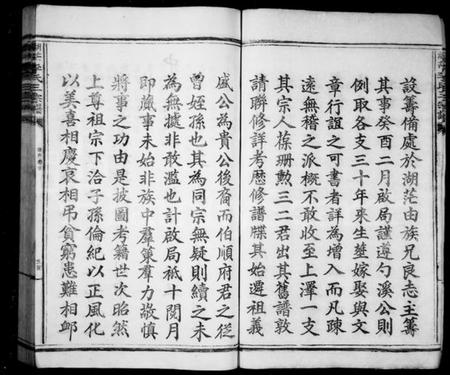 設籌備處於湖茫由族兄良志主籌
其事癸酉二月啟局謹遵勺溪公則
例取各支三十年來生塋嫁娶與文
章行誼之可書者詳為增入而凡疎
遠無稽之派概不敢收至上澤一支
其宗人葆珊勲三二君出其舊譜敦
請聯修詳考歷修譜牒其始遷祖義
盛公為貴公後裔而伯順府君之從
曾姪孫也其為同宗無疑則續之未
為無據非敢濫也計啟局祇十閱月
即蕆事未始非族中羣策羣力敬慎
將事之功由是披圖考籍世次昭然
上尊祖宗下洽子孫倫紀以正風化
以美喜相慶哀相弔貧窮患難相卹